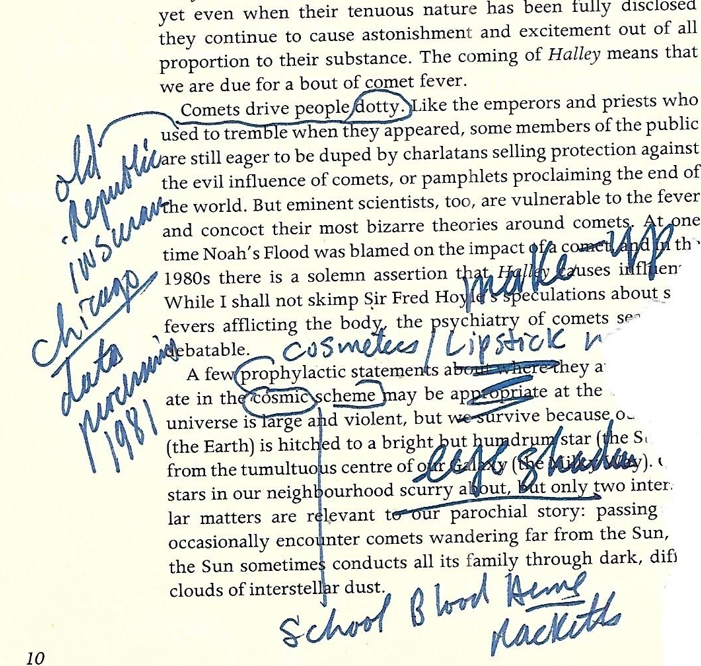 yet even when their tenuous nature has been fully disclosed
they continue to cause astonishment and excitement out of all
proportion to their substance. The coming of Halley means that
we are due for a bout of comet fever.
Comets drive people dotty. Like the emperors and priests who
used to tremble when they appeared, some members of the public
are still eager to be duped by charlatans selling protection against
the evil influence of comets, or pamphlets proclaiming the end of
the world. But eminent scientists, too, are vulnerable to the fever
and concoct their most bizarre theories around comets. At one
time Noah's Flood was blamed on the impact of a comet, and in th
1980s there is a solemn assertion that Halley causes influen
While I shall not skimp Sir Fred Hoyle's speculations about s
fevers afflicting the body, the psychiatry of comets se
debatable.
A few prophylactic statements about where they a
ate in the cosmic scheme may be appropriate at the
universe is large and violent, but we survive because o
(the Earth) is hitched to a bright but humdrum star (the S
from the tumultuous centre of our Galaxy (the Milky Way).
stars in our neighbourhood scurry about, but only two inter
lar matters are relevant to our parochial story: passing
occasionally encounter comets wandering far from the Sun,
the Sun sometimes conducts all its family through dark, dif
clouds of interstellar dust.
10
old
Republic
insuran
Chicago
data
processing
1981
make-up
cosmeters / Lipstick
eye shadow
School Blood